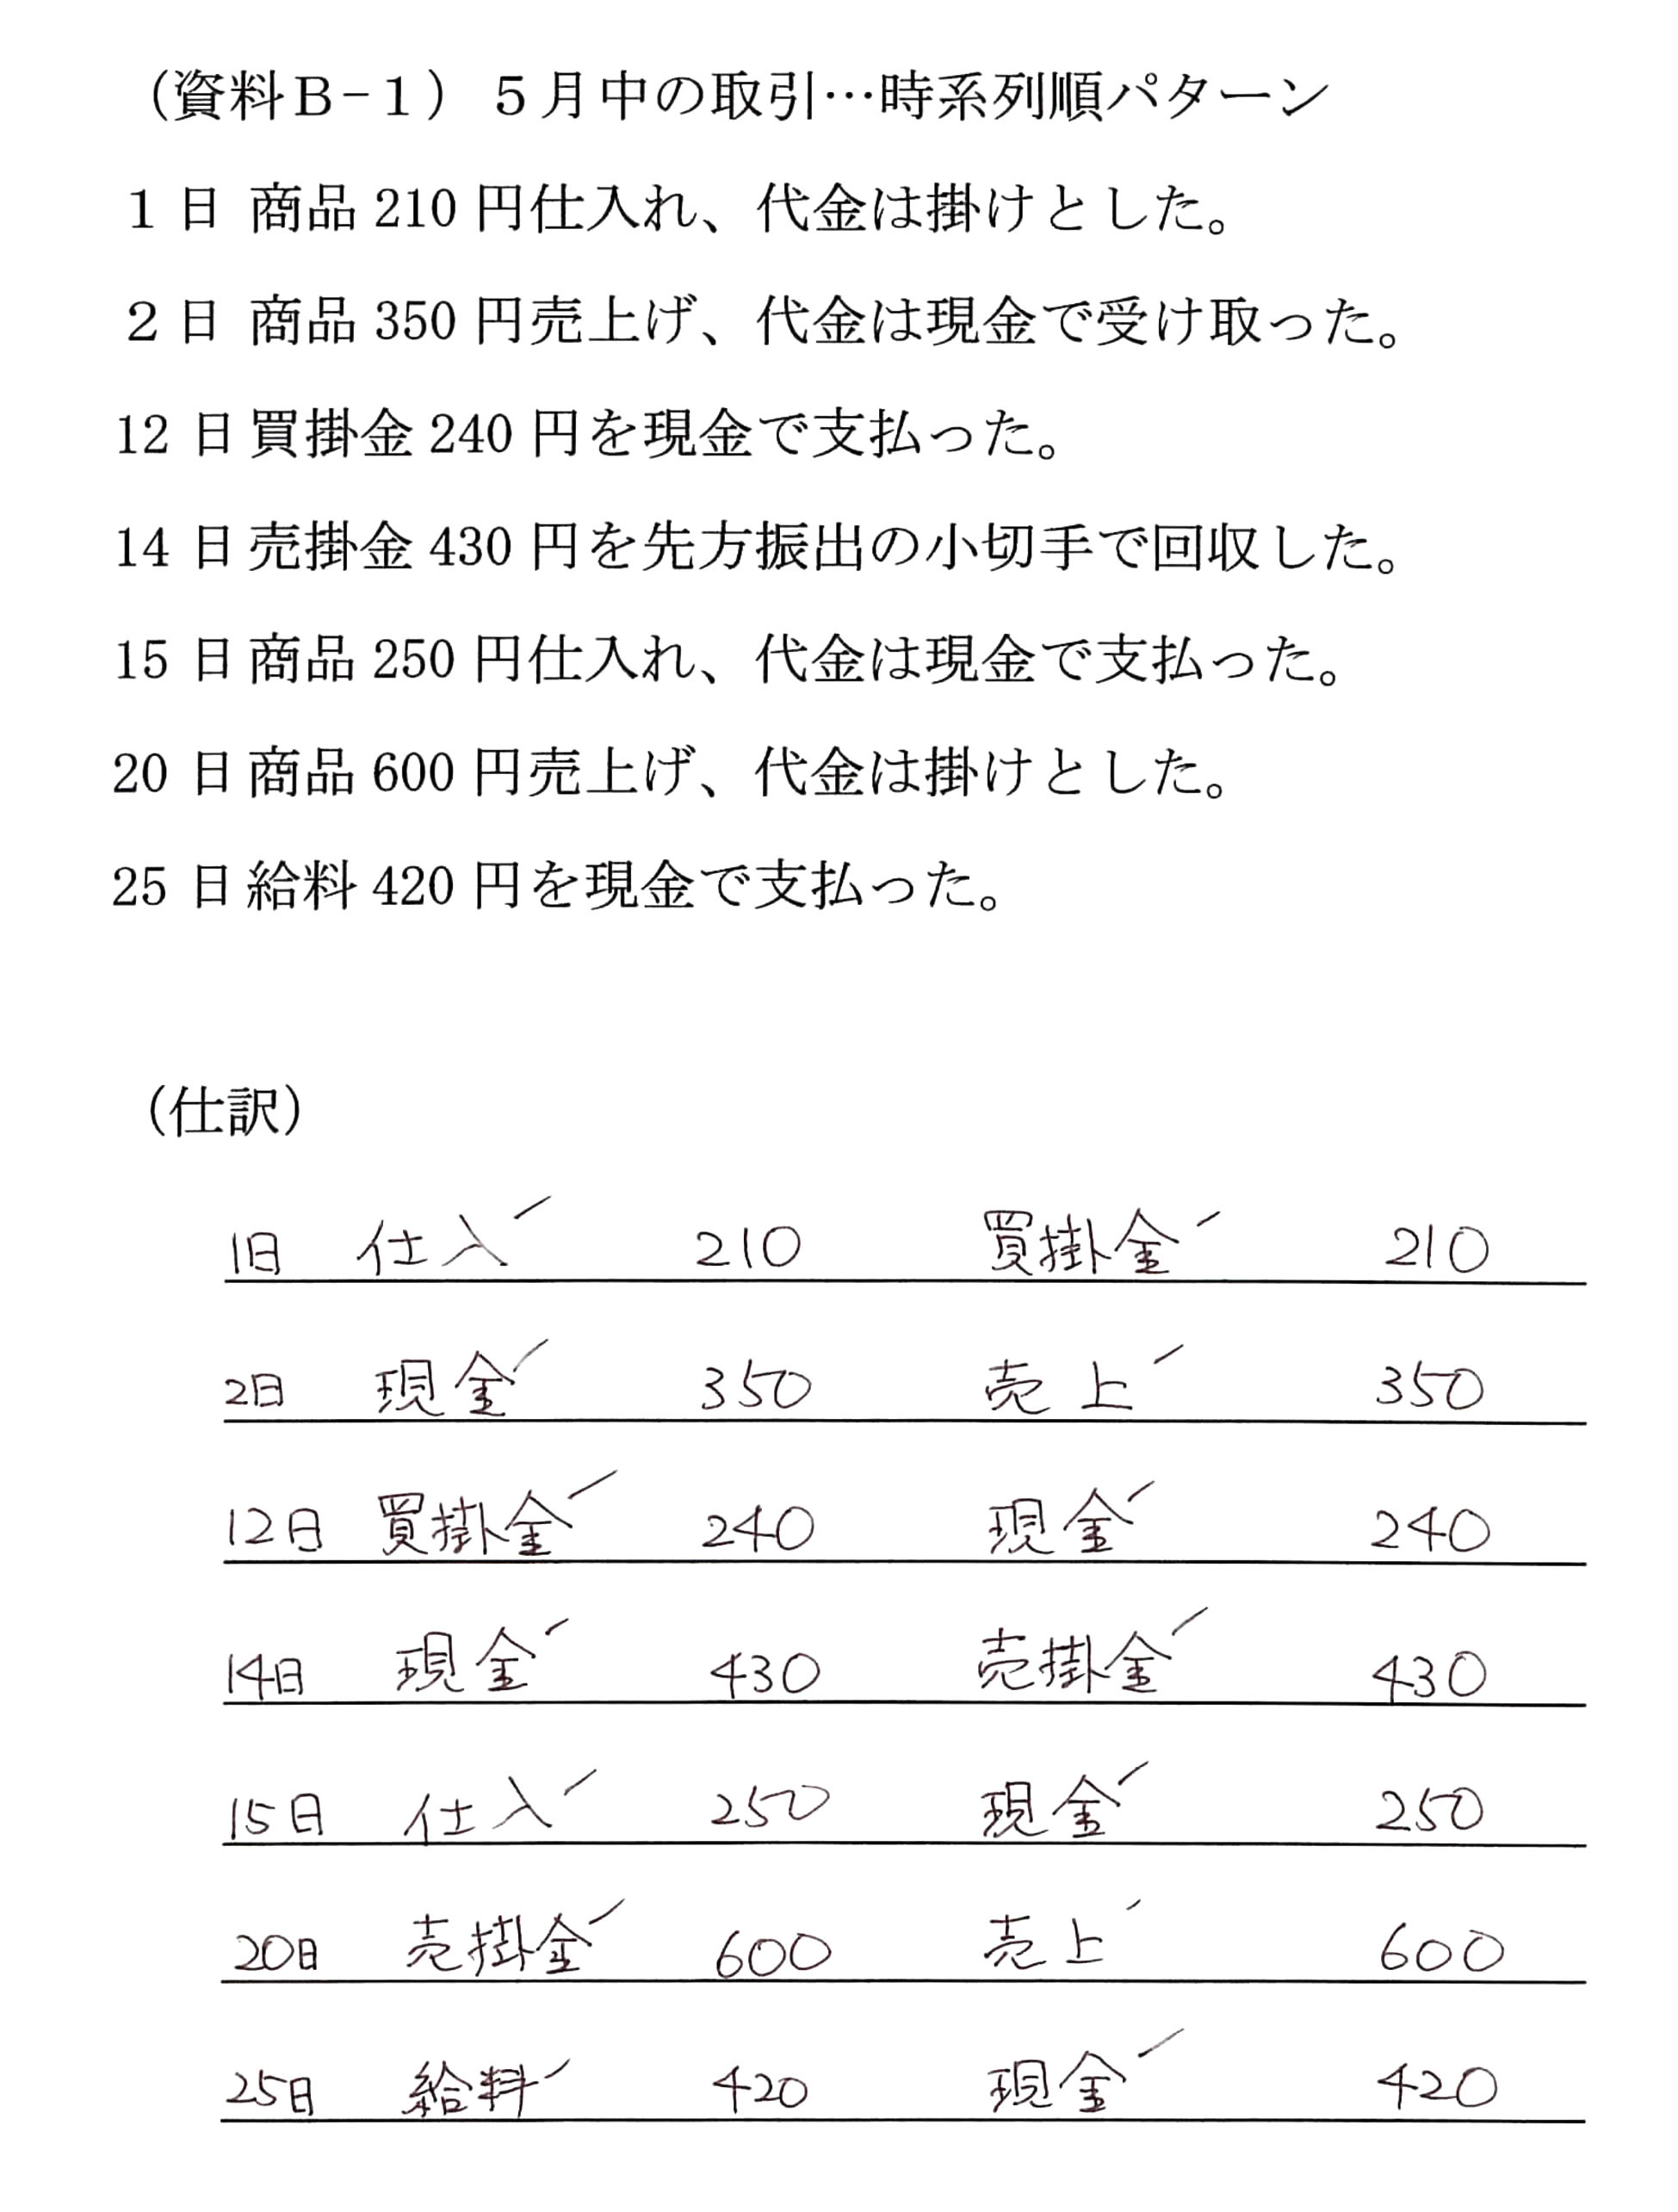 （資料Ｂ-１）５月中の取引…時系列順パターン
1 日 商品 210 円仕入れ、代金は掛けとした。
２日 商品 350 円売上げ、代金は現金で受け取った。
12 日買掛金 240 円を現金で支払った。
14 日売掛金 430 円を先方振出の小切手で回収した。
15 日商品 250 円仕入れ、代金は現金で支払った。
20 日商品 600 円売上げ、代金は掛けとした。
25 日給料 420 円を現金で支払った。
（仕訳）
1日 仕入 210 買掛金 210
2日 現金 350 売上 350
12日 買掛金 240 現金 240
14日 現金 430 売掛金 430
15日 仕入 250 現金 250
20日 売掛金 600 売上 600
25日 給料 420 現金 420